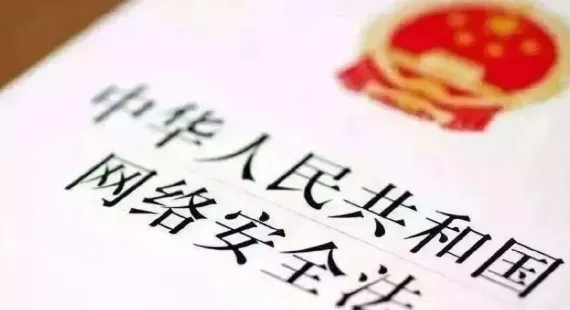 中华人民共和国
网络安全法